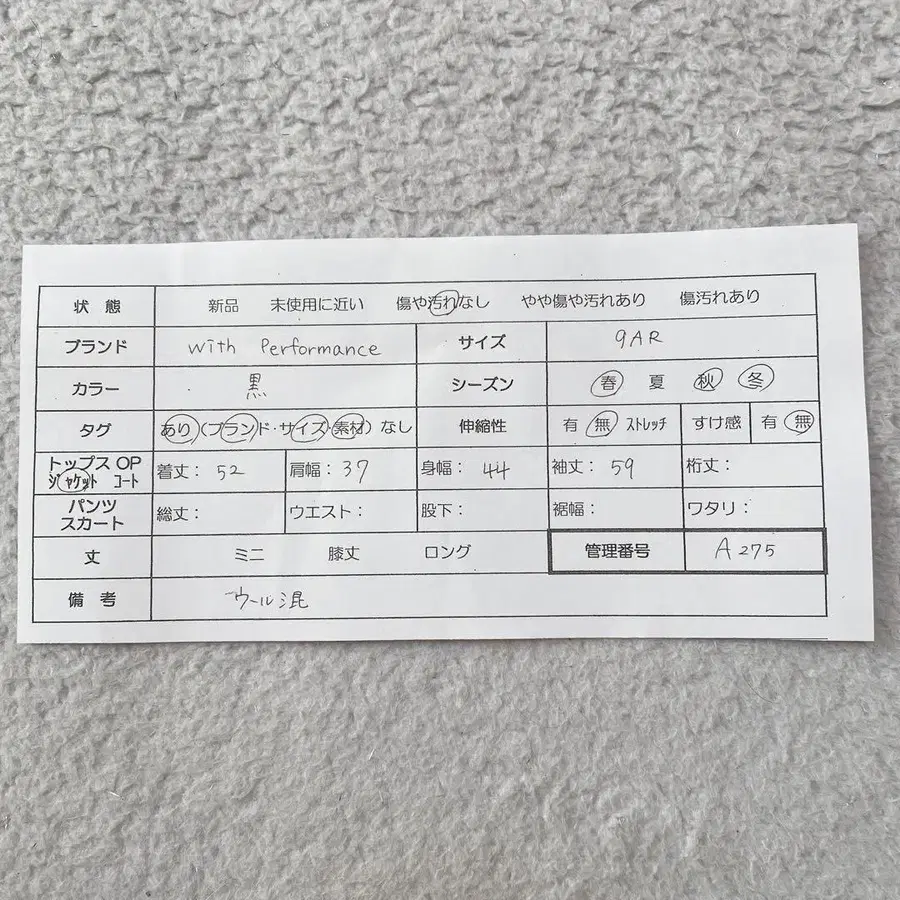 状態 新品 未使用に近い 傷や汚れなし やや傷や汚れあり 傷汚れあり
ブランド with Performance サイズ 9AR
カラー 黒 シーズン 春 夏 秋 冬
タグ あり(ブランド・サイズ・素材) なし 伸縮性 有 無 ストレッチ すけ感 有 無
トップス OP
ジャケット コート 着丈: 52 肩幅: 37 身幅: 44 袖丈: 59 裄丈:
パンツ
スカート 総丈: ウエスト: 股下: 裾幅: ワタリ:
丈 ミニ 膝丈 ロング 管理番号 A275
備考 ウール混